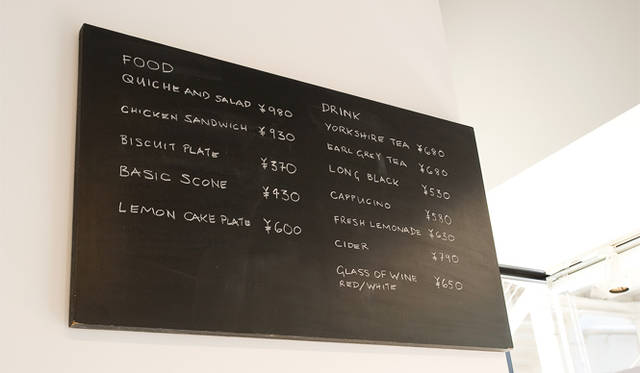 FOOD
QUICHE AND SALAD ¥980
CHICKEN SANDWICH ¥930
BISCUIT PLATE ¥370
BASIC SCONE ¥430
LEMON CAKE PLATE ¥600
DRINK
YORKSHIRE TEA ¥680
EARL GREY TEA ¥680
LONG BLACK ¥530
CAPPUCINO ¥580
FRESH LEMONADE ¥630
CIDER ¥790
GLASS OF WINE ¥650
RED/WHITE